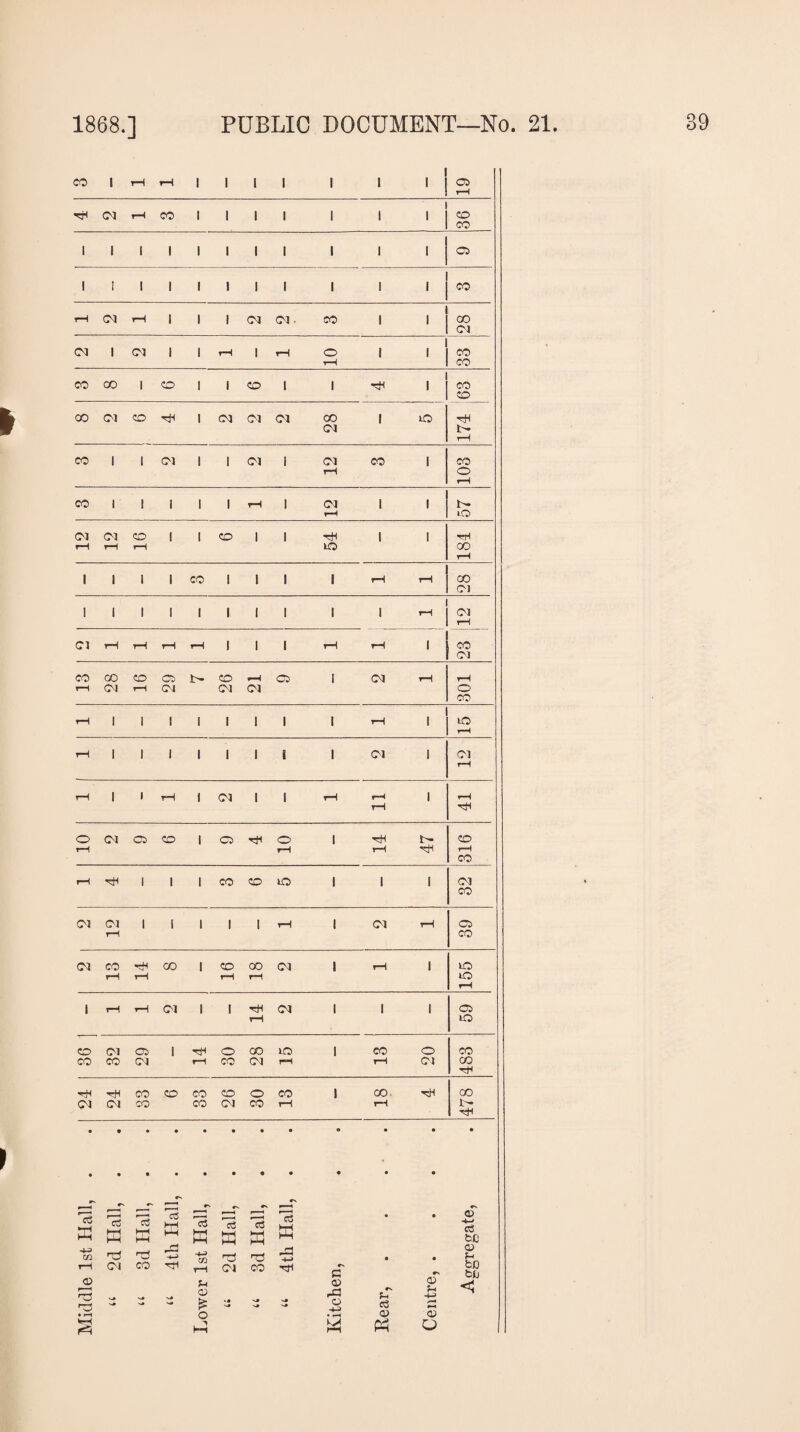 1868.] PUBLIC DOCUMENT—No. 21. 39
Middle 1st Hall, . . 24 36 - 2 2 1 10 1 1 1 13 2 - - 12 3 3 8 3 2 1 - - 4 3
" 2d Hall, . . 24 32 1 13 12 4 2 - - - 28 1 - - 12 - - 2 8 - 2 - - 2 -
" 3d Hall, . . 33 29 1 14 - - 9 - - - 16 1 - - 16 - - 6 - 2 1 - - 1 1
" 4th Hall, . . 6 - 2 8 - - 6 1 - - 29 1 - - - - 2 4 6 - - - - 3 1
Lower 1st Hall, . . 33 14 - - - - - - - - 7 1 - 3 - - - - - - - - - - -
" 2d Hall, . . 26 30 - 16 - 3 9 2 - - 26 - - - 6 - - 2 - 1 - - - - -
" 3d Hall, . . 30 28 14 18 - 6 4 - - - 21 - - - - 1 2 2 6 - 2 - - - -
" 4th Hall, . . 13 15 2 2 1 5 10 - - - 9 - - - - - - 2 - 1 2 - - - -
Kitchen, . . . - - - - - - - 1 - - - 1 - - 54 12 12 28 - 10 3 - - - -
Rear, . . . . 18 13 - 1 2 - 14 11 2 1 2 1 - 1 - - 3 - 4 - - - - - -
Centre, . . . . 4 20 - - 1 - 47 - - - 1 - 1 1 - - - 5 - - - - - - -
Aggregate, . 478 483 59 155 39 32 316 41 12 15 301 23 12 28 184 57 103 174 63 33 28 3 9 36 19